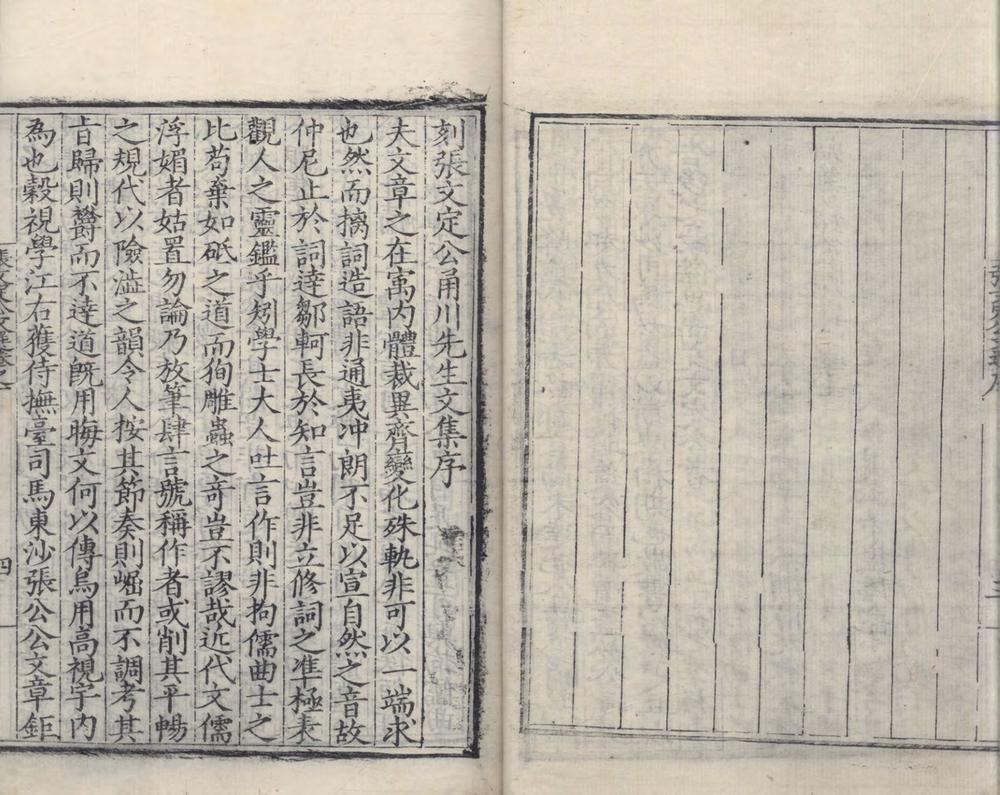 刻張文定公甬川先生文集序
夫文章之在寓内體裁異齊變化殊軌非可以一端求
也然而摛詞造語非通夷冲朗不足以宣自然之音故
仲尼止於詞逹鄒軻長於知言豈非立修詞之準極表
觀人之靈鑑乎矧學士大人吐言作則非拘儒曲士之
比苟棄如砥之道而狥雕蟲之奇豈不謬哉近代文儒
浮媚者姑置勿論乃放筆肆言號稱作者或削其平暢
之規代以險澁之韻令人按其節奏則崛而不調考其
㫖歸則欝而不逹道旣用晦文何以傳烏用高視宇内
為也榖視學江右獲侍撫臺司馬東沙張公公文章鉅
四